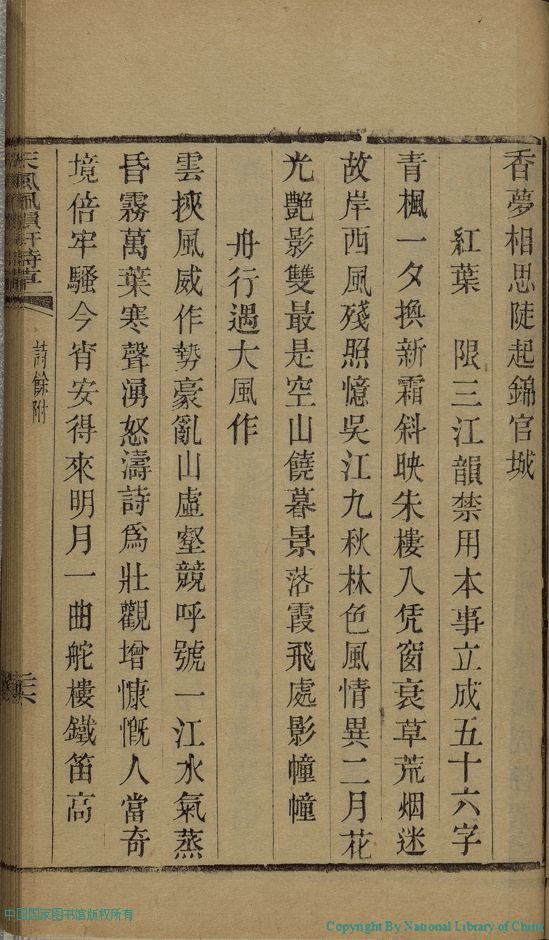 香夢相思陡起錦官城
紅葉　限三江韻禁用本事立成五十六字
青楓一夕換新霜斜映朱樓入凭窗衰草荒烟迷
故岸西風殘照憶吳江九秋林色風情異二月花
光艷影雙最是空山饒暮景落霞飛處影幢幢
舟行遇大風作
雲挾風威作勢豪亂山虛壑競呼號一江水氣蒸
昏霧萬葉寒聲湧怒濤詩爲壯觀增慷慨人當奇
境倍牢騷今宵安得來明月一曲舵樓鐵笛高
天風佩軒詩草
詩餘附
中国国家图书馆版权所有
Copyright By National Library of China